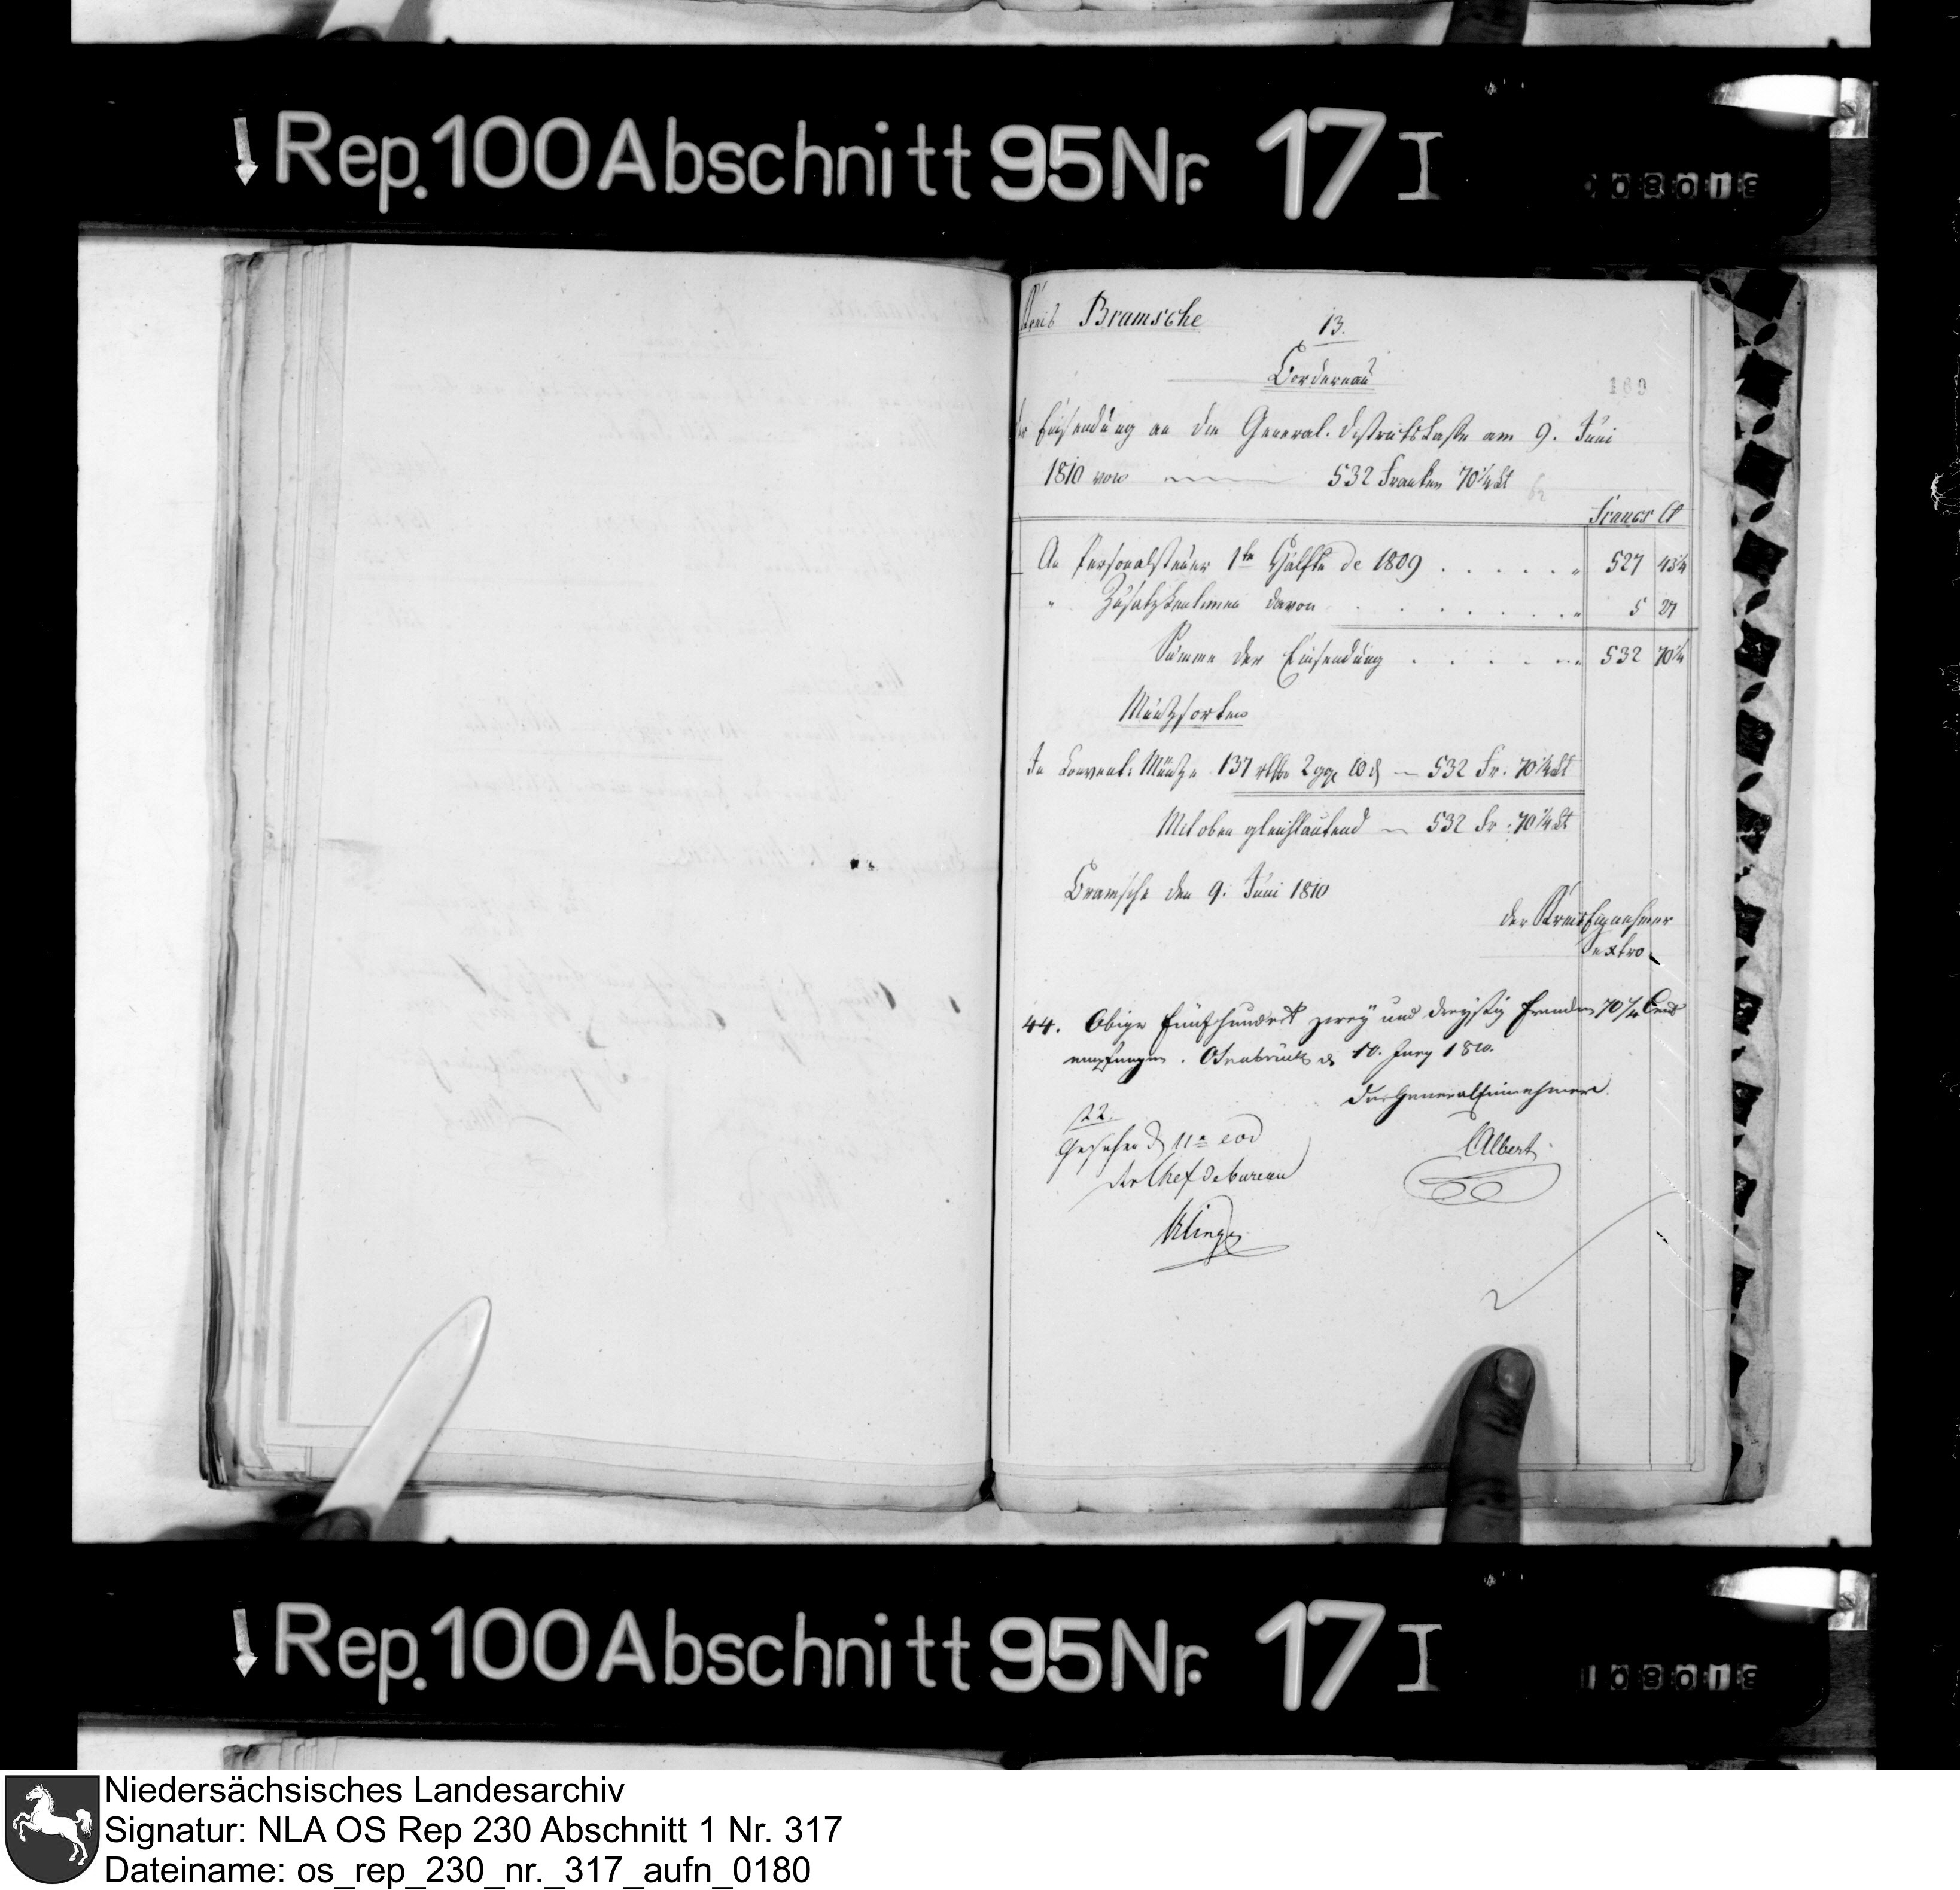 Rep. 100 Abschnitt 95 Nr. 17 I
Kreis Bramsche
13.
Bordereau
169
der Einsendung an die General-Districtskasse am 9. Juni
1810 von 532 Franken 70 1/4 Ct
Francs Ct
An Personalsteuer 1te Hälfte de 1809 . . . . . " 527 43 1/4
" Zusatzcentimen davon . . . . . . " 5 27
Summe der Einsendung . . . . . " 532 70 1/4
Müntzsorten
In Convent: Müntze 137 rthlr 2 ggr 10 d — 532 Fr. 70 1/4 Ct
Mit oben gleichlautend — 532 Fr. 70 1/4 Ct
Bramsche den 9. Juni 1810
der Kreis Einnehmer
Sextro
44. Obige Fünfhundert zwey und dreyßig Franken 70 1/4 Cent
empfangen. Osnabrück d 10. Juny 1810.
Der General Einnehmer.
Albert
122.
Gesehen d 11 eod
der Chef de bureau
Klinge
Rep. 100 Abschnitt 95 Nr. 17 I
Niedersächsisches Landesarchiv
Signatur: NLA OS Rep 230 Abschnitt 1 Nr. 317
Dateiname: os_rep_230_nr._317_aufn_0180